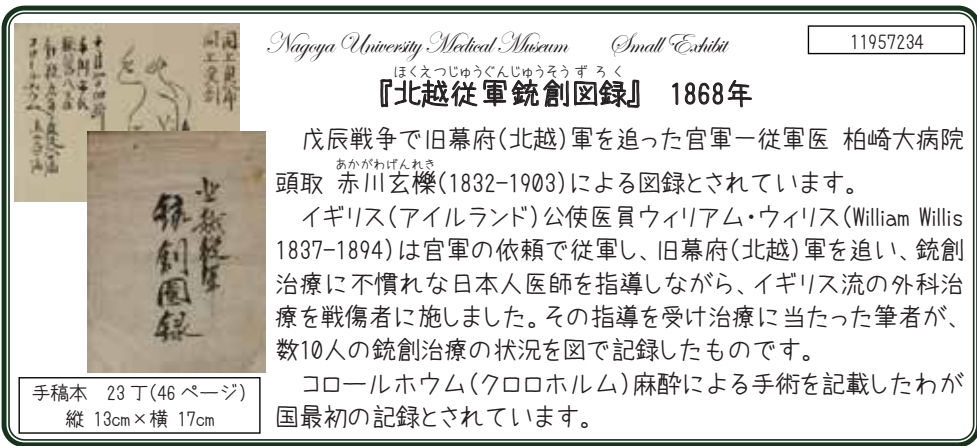 Nagoya University Medical Museum Small Exhibit
11957234
ほくえつじゅうぐんじゅうそうずろく
『北越従軍銃創図録』 1868年
戊辰戦争で旧幕府(北越)軍を追った官軍一従軍医 柏崎大病院
あかがわげんれき
頭取 赤川玄櫟(1832-1903)による図録とされています。
イギリス(アイルランド)公使医員ウィリアム・ウィリス(William Willis
1837-1894)は官軍の依頼で従軍し、旧幕府(北越)軍を追い、銃創
治療に不慣れな日本人医師を指導しながら、イギリス流の外科治
療を戦傷者に施しました。その指導を受け治療に当たった筆者が、
数10人の銃創治療の状況を図で記録したものです。
コロールホウム(クロロホルム)麻酔による手術を記載したわが
国最初の記録とされています。
北越従軍
銃創図録
手稿本 23丁(46ページ)
縦 13cm×横 17cm